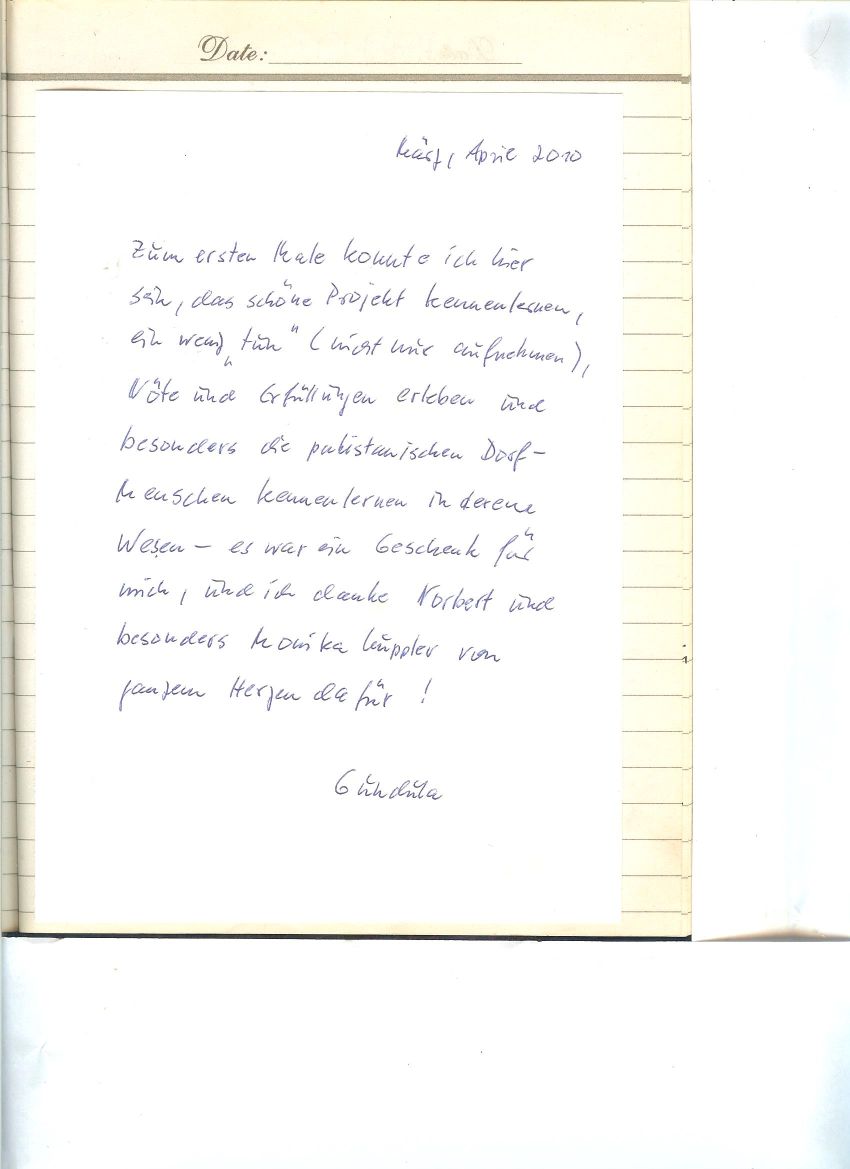 Date:
März, April 2010
Zum ersten Male konnte ich hier
sein, das schöne Projekt kennenlernen,
ein wenig „tun" (nicht nur aufnehmen),
Nöte und Erfüllungen erleben und
besonders die pakistanischen Dorf-
Menschen kennenlernen in deren
Wesen – es war ein Geschenk für
mich, und ich danke Norbert und
besonders Monika von
ganzem Herzen dafür!
Gundula